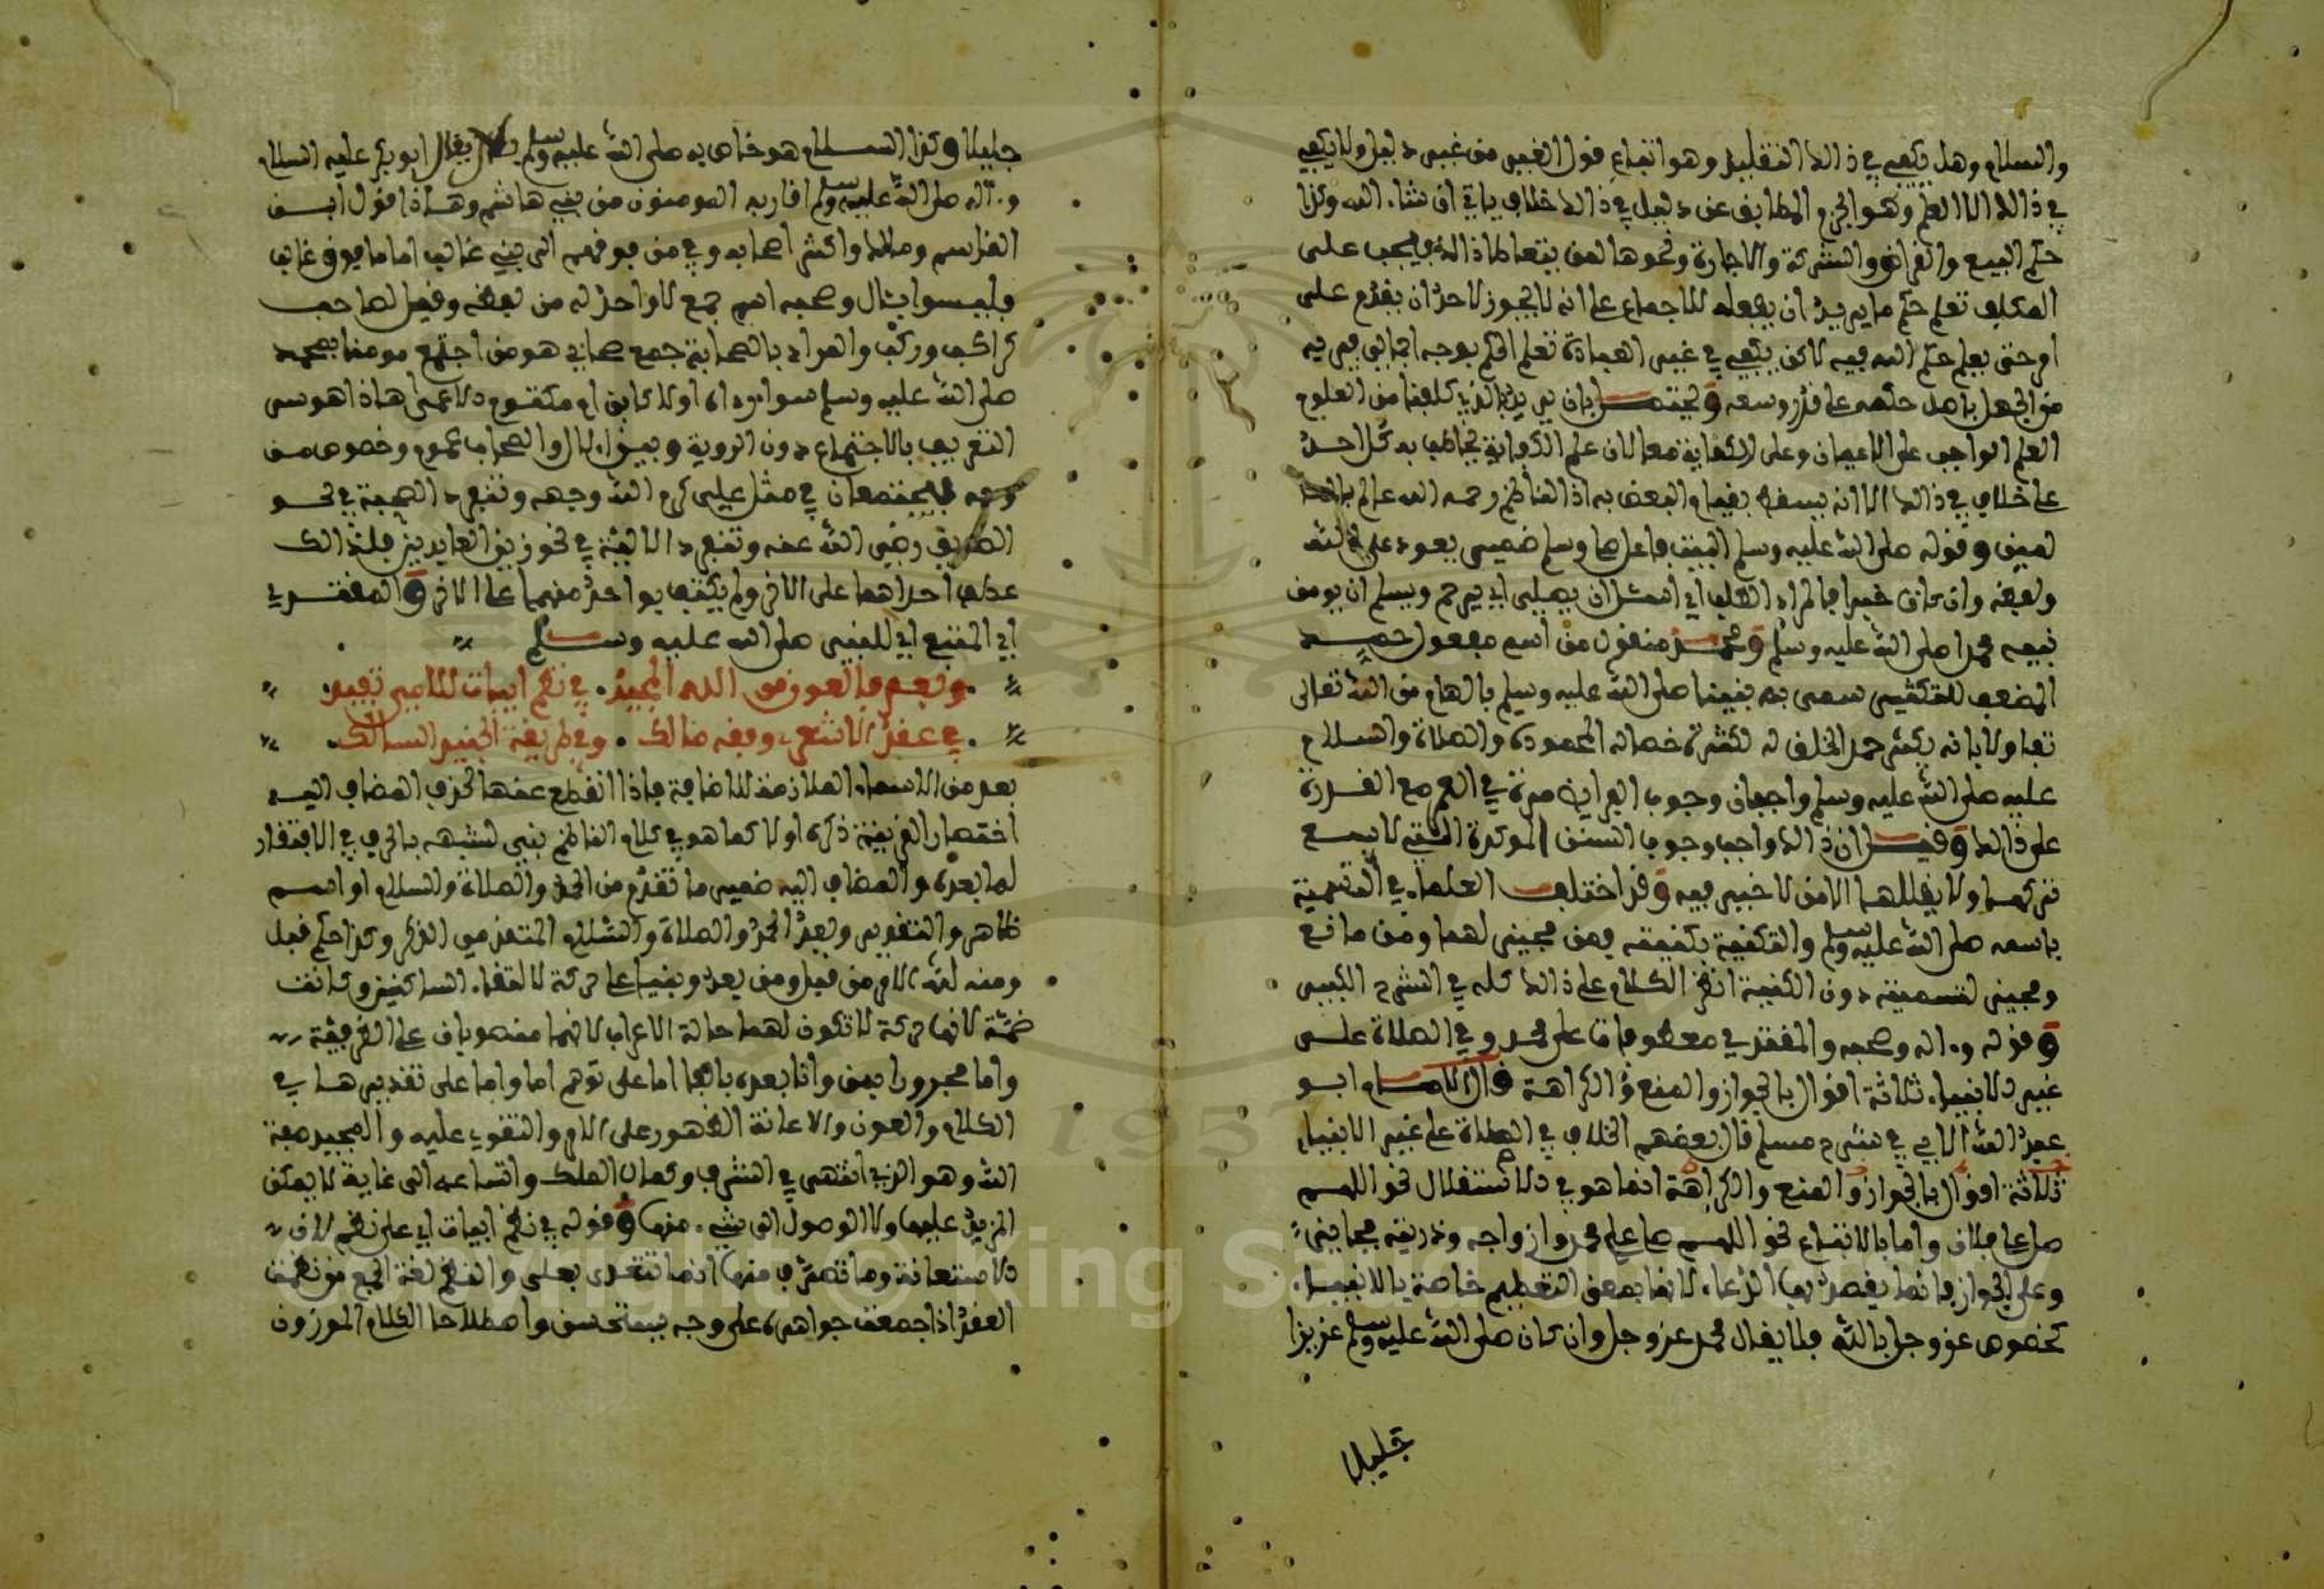 والسلام وهل يكفي في ذالك التقليد وهو اتباع قول الغير من غير دليل ولا يكفي
في ذالك الا العلم وهو الجزم المطابق عن دليل في ذالك خلاف ياتي ان شاء الله وكذا
حكم البيع والقراض والشركة والاجارة ونحوها لمن يتعاطا ذالك فيجب على
المكلف تعلم حكم ما يريد ان يفعله للاجماع على انه لا يجوز لاحد ان يقدم على
امر حتى يعلم حكم الله فيه لاكن يكفي في غير العبادة تعلم الحكم بوجه اجمالي يبريه
من الجهل باصل حكمه على قدر وسعه ويحتمل بان يريد بالذي كلفنا من العلوم
العلم الواجب على الاعيان وعلى الكفاية معا لان علم الكفاية يخاطب به كل احد
على خلاف في ذالك الا انه يسقط بقيام البعض به اذ الناظم رحمه الله عالم بالحكمين
وقوله صلى الله عليه وسلم البيت فاعل صلى وسلم ضمير يعود على الله
ولفظه وان كان خبرا فالمراد الطلب اي اسئل ان يصلي اي يرحم ويسلم ان يومن
نبيه محمدا صلى الله عليه وسلم ومحمد منقول من اسم مفعول حمد
المضعف للتكثير سمي به نبينا صلى الله عليه وسلم بالهام من الله تعالى
تفاولا بانه يكثر حمد الخلق له لكثرة خصاله المحمودة والصلاة والسلام
عليه صلى الله عليه وسلم واجبان وجوب الفرايض مرة في العمر مع القدرة
على ذالك وقيل ان ذالك واجب وجوب السنن الموكدة التي لا يسع
تركها ولا يغفلها الا من لا خير فيه وقد اختلف العلماء في التسمية
باسمه صلى الله عليه وسلم والتكنية بكنيته فمن مجيز لهما ومن مانع
ومجيز لتسميته دون الكنية انظر الكلام على ذالك كله في الشرح الكبير
وقوله وءاله وصحبه والمقتدي معطوفات على محمد وفي الصلاة على
غير الانبياء ثلاثة اقوال بالجواز والمنع والكراهة قال الامام ابو
عبد الله الابي في شرح مسلم قال بعضهم الخلاف في الصلاة على غير الانبياء
ثلاثة اقوال بالجواز والمنع والكراهة انما هو في الاستقلال نحو اللهم
صل على فلان واما بالاتباع نحو اللهم صل على محمد وازواجه وذريته فجايز
وعلى الجواز فانما يقصد بها الدعاء لانها بمعنى التعظيم خاصة بالانبياء
كخصوص عز وجل بالله فلا يقال محمد عز وجل وان كان صلى الله عليه وسلم عزيزا
جليلا
جليلا وكذا السلام هو خاص به صلى الله عليه وسلم فلا يقال ابو بكر عليه السلام
وءاله صلى الله عليه وسلم اقاربه المومنون من بني هاشم وهاذا قول ابن
القاسم ومالك واكثر اصحابه وفي من فوقهم الى بني غالب اما ما فوق غالب
فليسوا بئال وصحبه اسم جمع لا واحد له من لفظه وقيل لصاحب
كراكب وركب والمراد بالصحابة جمع صحابي هو من اجتمع مومنا بمحمد
صلى الله عليه وسلم سواء رءاه او لا كابن ام مكتوم الاعمى هاذا هو سر
التعريف بالاجتماع دون الروية وبين الءال والصحاب عموم وخصوص من
وجه فيجتمعان في مثل علي كرم الله وجهه وتنفرد الصحبة في نحو
الصديق رضي الله عنه وتنفرد الالية في نحو زين العابدين فلذالك
عطف احداهما على الاخر ولم يكتف بواحد منهما على الاخر والمقتدي
اي المتبع اي للنبي صلى الله عليه وسلم
وبعد فالعون من الله المجيد. في نظم ابيات للامي تفيد.
في عقد الاشعري وفقه مالك. وفي طريقة الجنيد السالك.
بعد من الاسماء الملازمة للاضافة فاذا انقطع عنها لحذف المضاف اليه
اختصارا لقرينة ذكره اولا كما هو في كلام الناظم بني لشبهه بالحرف في الافتقار
لما بعده والمضاف اليه ضمير ما تقدم من الحمد والصلاة والسلام او اسم
ظاهر والتقدير وبعد الحمد والصلاة والسلام المتقدمي الذكر وكذا حكم قبل
ومنه لله الامر من قبل ومن بعد وبنيا على حركة لالتقاء الساكنين وكانت
ضمة لانها حركة لا تكون لهما حالة الاعراب لانهما منصوبان على الظرفية
واما مجروران بمن واتا بعده بالفاء اما على توهم اما واما على تقديرها في
الكلام والعون والاعانة الظهور على الامر والتقوي عليه والمجيد صفة
الله وهو الذي انتهى في الشرف وكمال الملك واتساعه الى غاية لا يمكن
المزيد عليها ولا الوصول الى شيء منها وقوله في نظم ابيات اي على نظم لان
الاستعانة وما تصرف منها انما تتعدى بعلى والنظم لغة الجمع من نظمت
العقد اذا جمعت جواهره على وجه يستحسن واصطلاحا الكلام الموزون